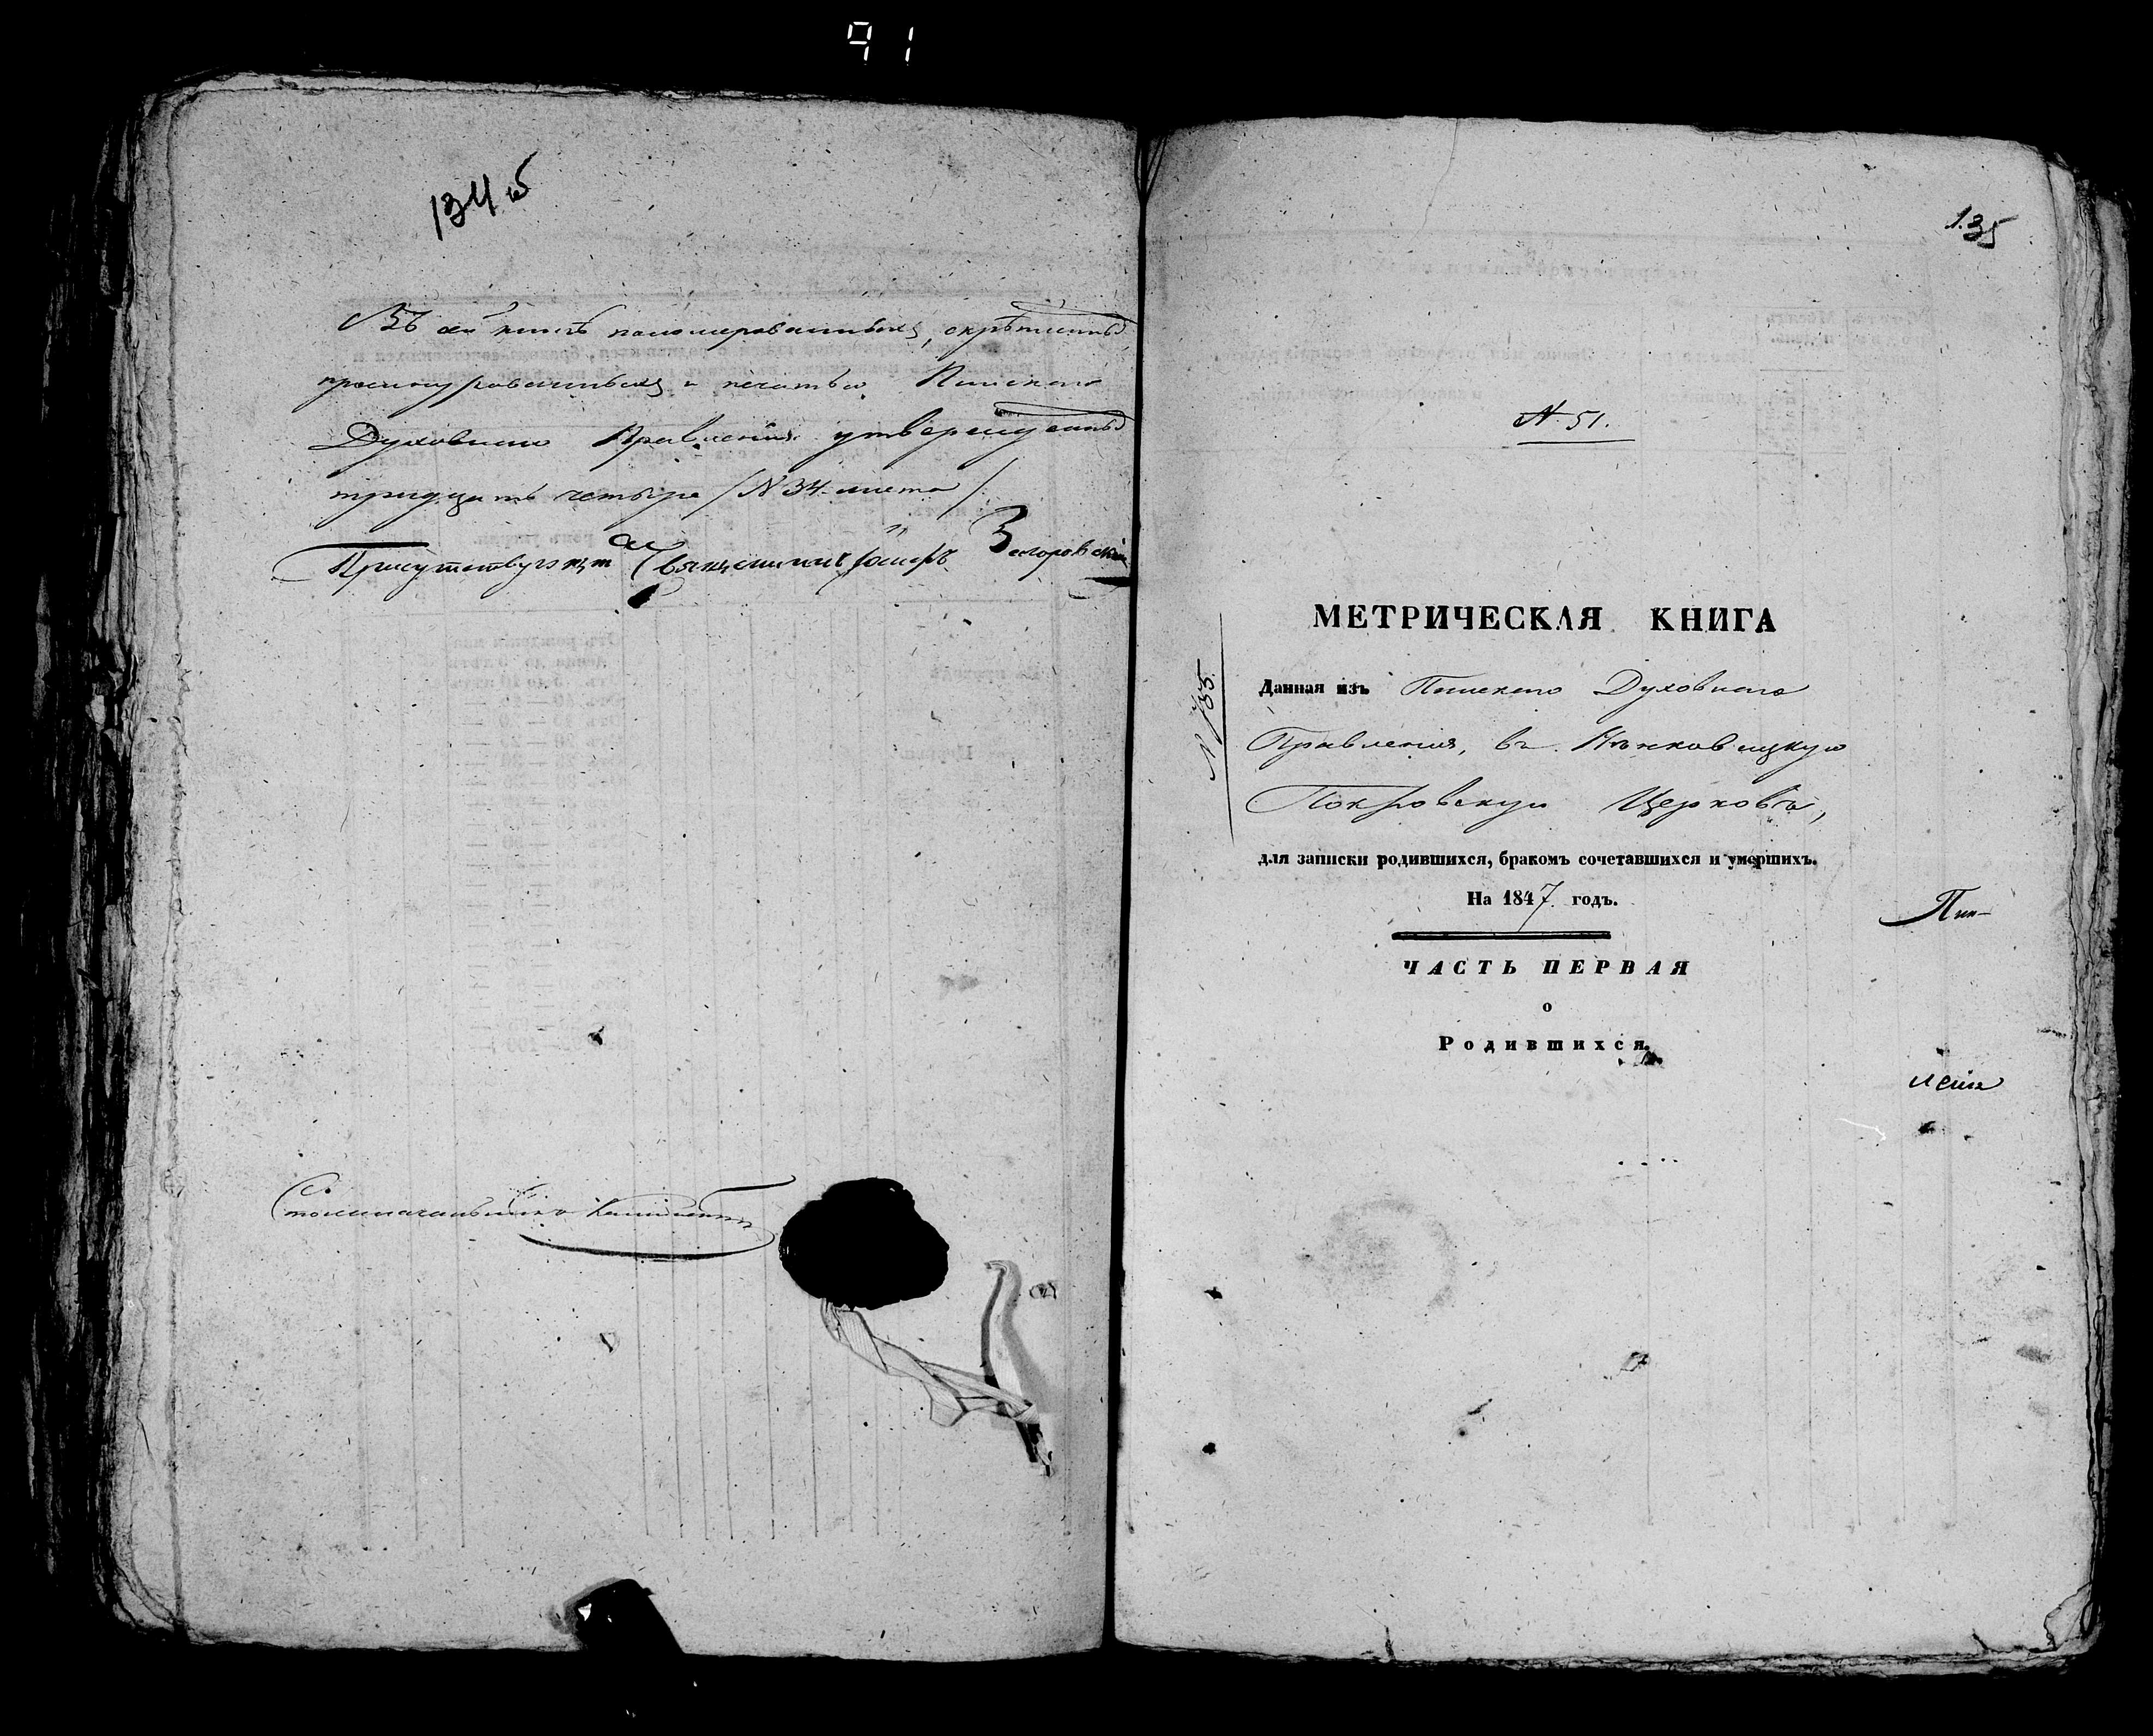 91
134 об
Въ сей книгѣ пономерованныхъ, скрѣпленныхъ
прошнурованныхъ и печатью Пинскаго
Духовнаго Правленія утвержденныхъ
тридцать четыре / N 34 листа /
Присутствующій Священникъ Іосифъ Загоровскій
Столоначальникъ
135
N. 51.
МЕТРИЧЕСКАЯ КНИГА
N 735.
Данная изъ Пинскаго Духовнаго
Правленія, въ Нѣнковицкую
Покровскую Церковь,
для записки родившихся, бракомъ сочетавшихся и умершихъ.
На 1847 годъ.
Пин-
ЧАСТЬ ПЕРВАЯ
о
Родившихся.